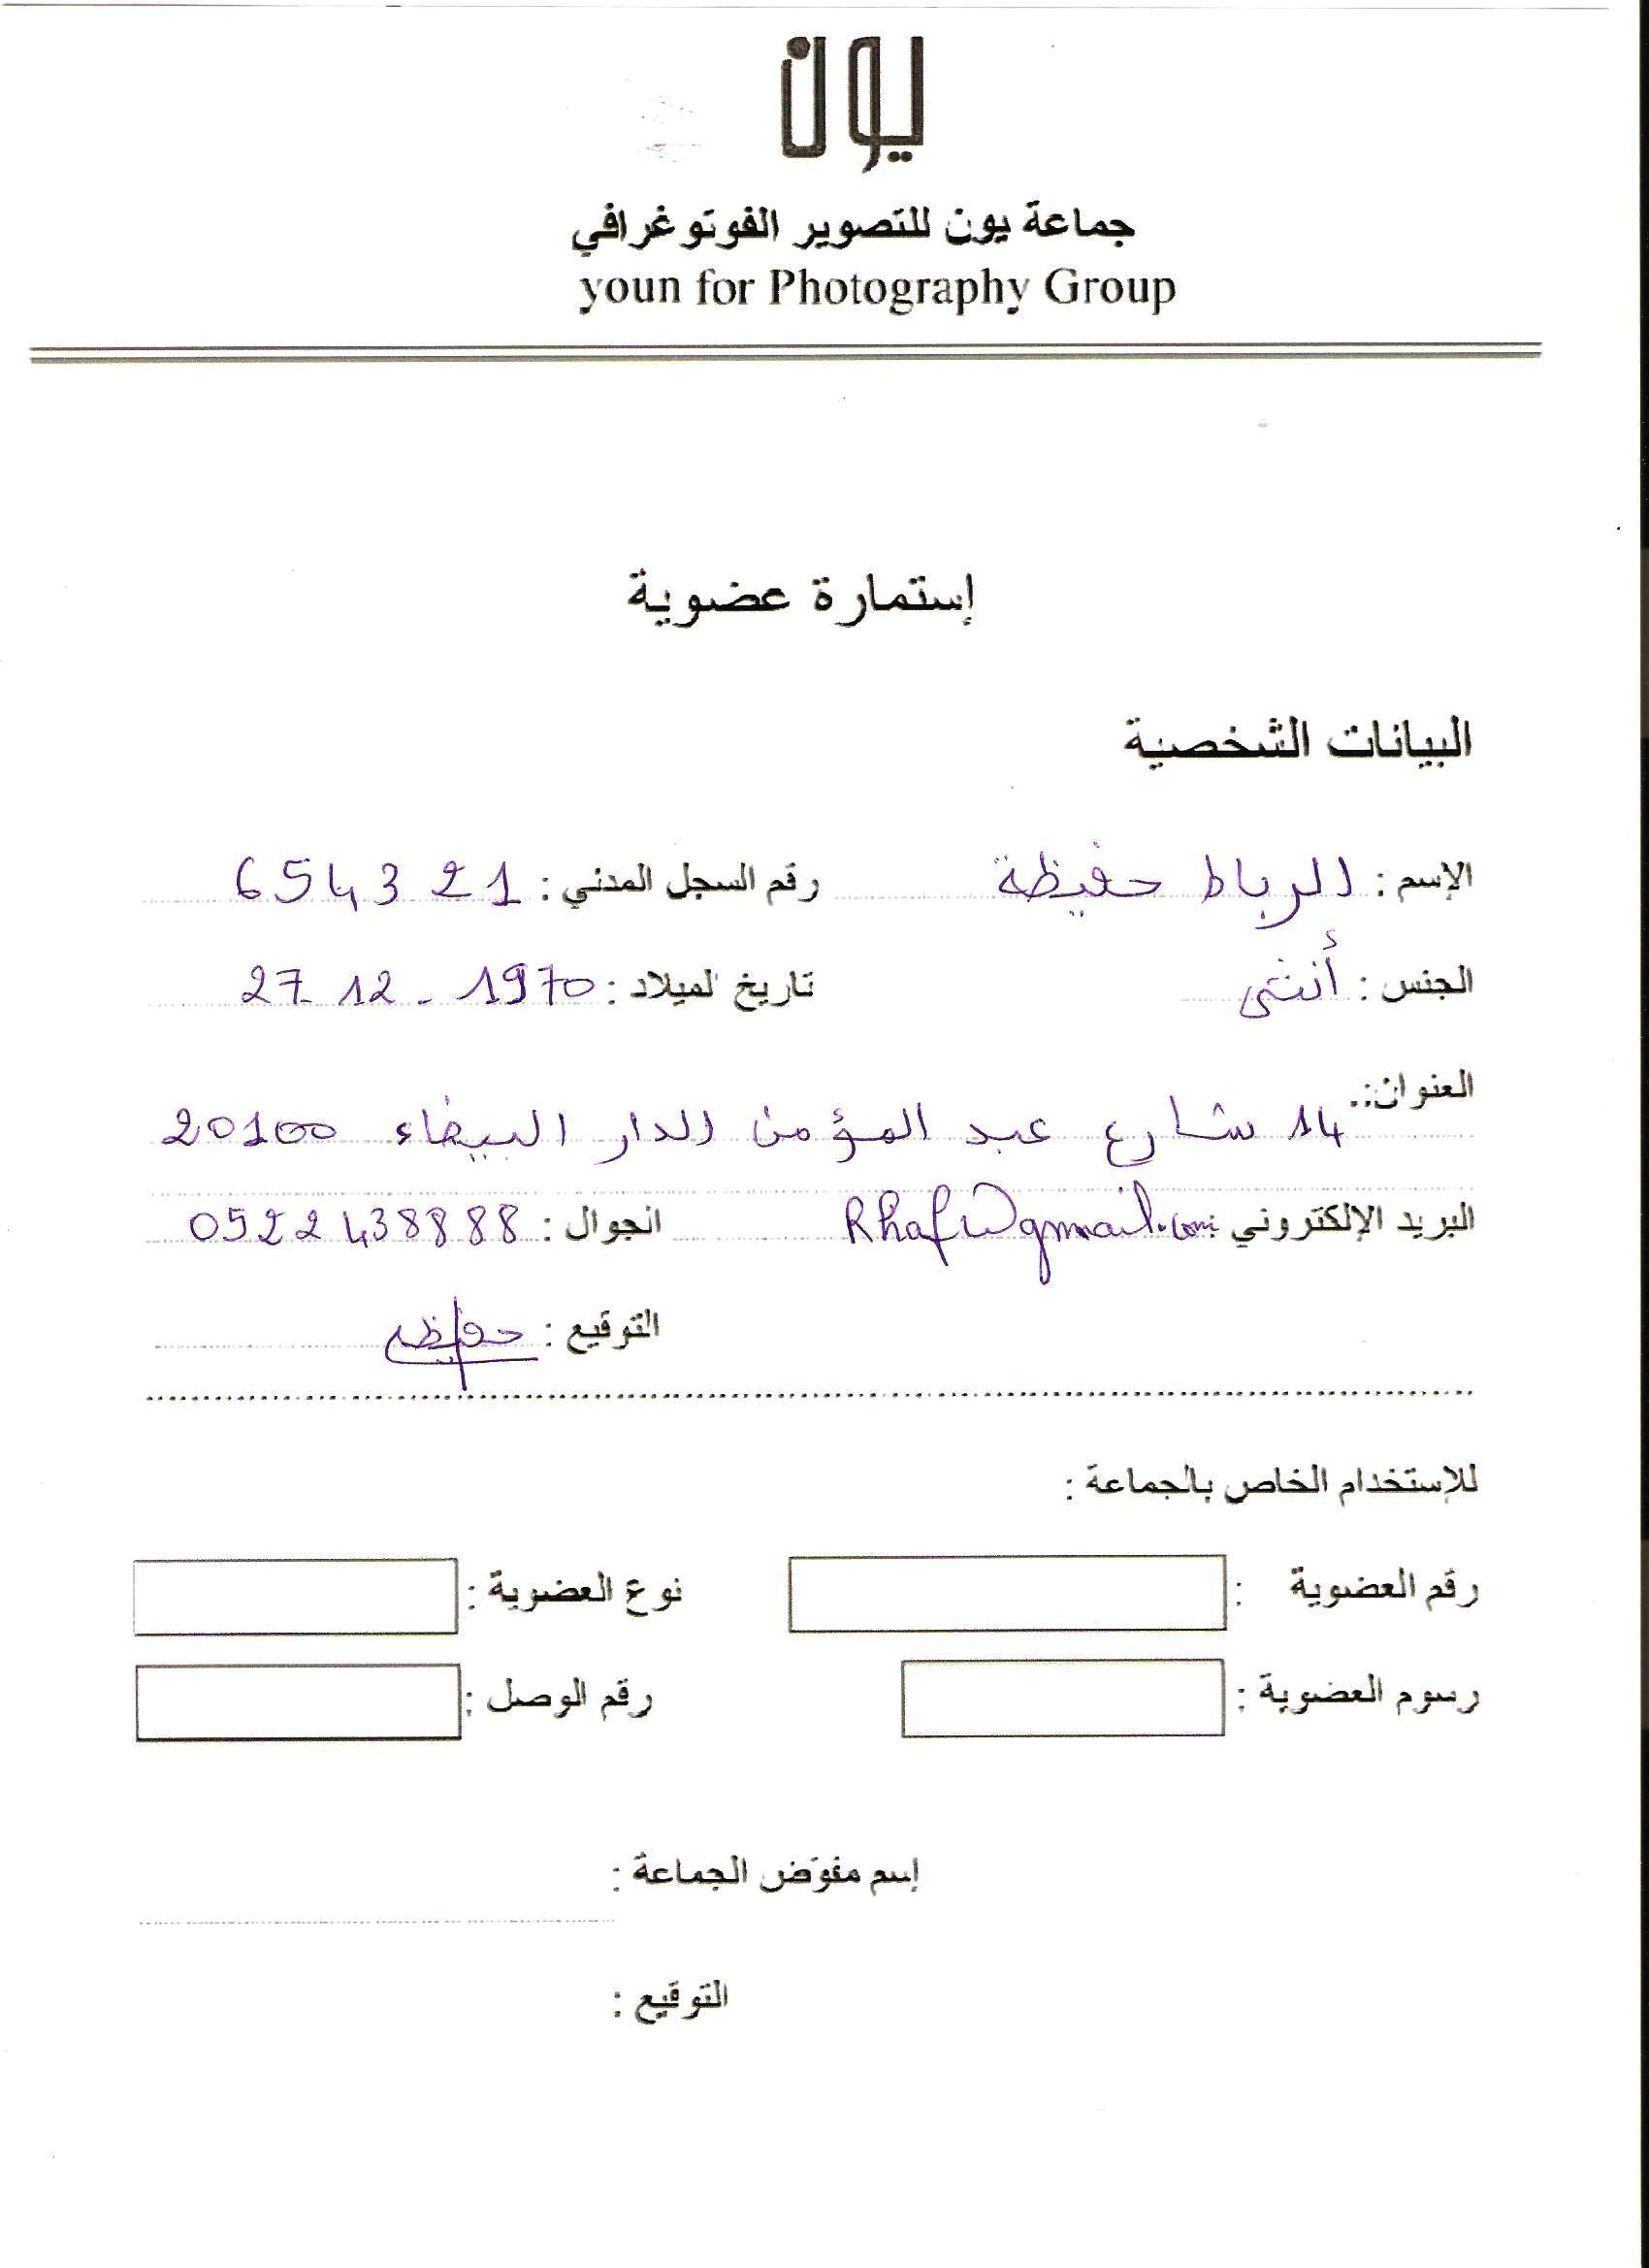 يون
جماعة يون للتصوير الفوتوغرافي
youn for Photography Group
إستمارة عضوية
البيانات الشخصية
الإسم : الرباط حفيظة رقم السجل المدني : 654321
الجنس : أنثى تاريخ لميلاد : 27-12-1970
العنوان:
14 شارع عبد المؤمن الدار البيضاء 20100
البريد الإلكتروني : Rhaf@gmail.com الجوال : 0522438888
التوقيع : حفيظة
للإستخدام الخاص بالجماعة :
رقم العضوية : نوع العضوية :
رسوم العضوية : رقم الوصل :
إسم مفوّض الجماعة :
التوقيع :